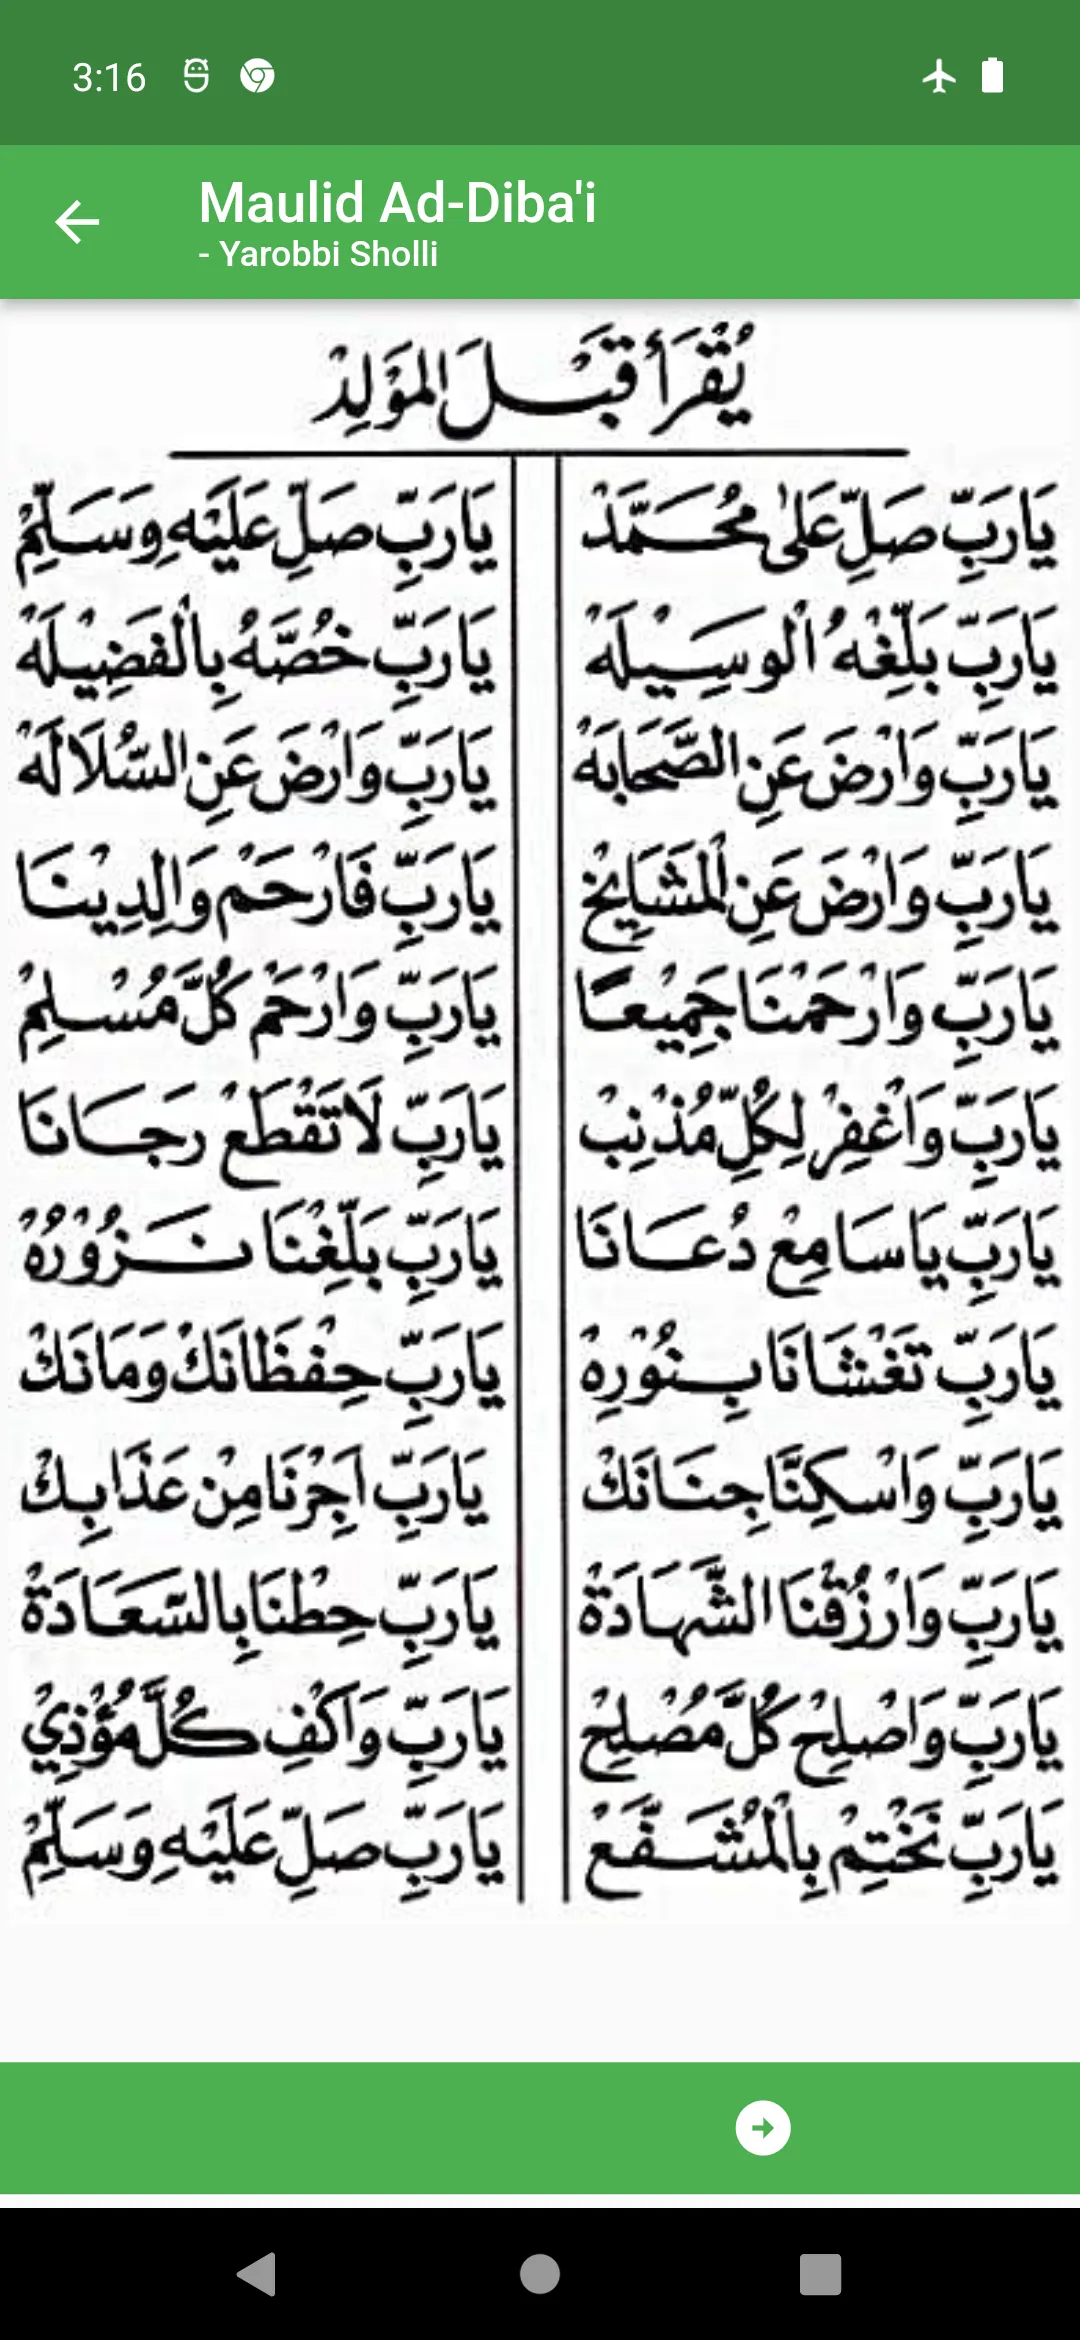 3:16
Maulid Ad-Diba'i
- Yarobbi Sholli
يُقْرَأُ قَبْلَ الْمَوْلِدْ
يَارَبِّ صَلِّ عَلٰى مُحَمَّدْ يَارَبِّ صَلِّ عَلَيْهِ وَسَلِّمْ
يَارَبِّ بَلِّغْهُ الْوَسِيْلَهْ يَارَبِّ خُصَّهُ بِالْفَضِيْلَهْ
يَارَبِّ وَارْضَ عَنِ الصَّحَابَهْ يَارَبِّ وَارْضَ عَنِ السُّلَالَهْ
يَارَبِّ وَارْضَ عَنِ الْمَشَايِخْ يَارَبِّ فَارْحَمْ وَالِدِيْنَا
يَارَبِّ وَارْحَمْنَا جَمِيْعًا يَارَبِّ وَارْحَمْ كُلَّ مُسْلِمْ
يَارَبِّ وَاغْفِرْ لِكُلِّ مُذْنِبْ يَارَبِّ لَا تَقْطَعْ رَجَانَا
يَارَبِّ يَا سَامِعْ دُعَانَا يَارَبِّ بَلِّغْنَا نَزُوْرُهْ
يَارَبِّ تَغْشَانَا بِنُوْرِهْ يَارَبِّ حِفْظَانَكْ وَمَانَكْ
يَارَبِّ وَاسْكِنَّا جِنَانَكْ يَارَبِّ اَجِرْنَا مِنْ عَذَابِكْ
يَارَبِّ وَارْزُقْنَا الشَّهَادَةْ يَارَبِّ حِطْنَا بِالسَّعَادَةْ
يَارَبِّ وَاصْلِحْ كُلَّ مُصْلِحْ يَارَبِّ وَاكْفِ كُلَّ مُؤْذِيْ
يَارَبِّ نَخْتِمْ بِالْمُشَفَّعْ يَارَبِّ صَلِّ عَلَيْهِ وَسَلِّمْ